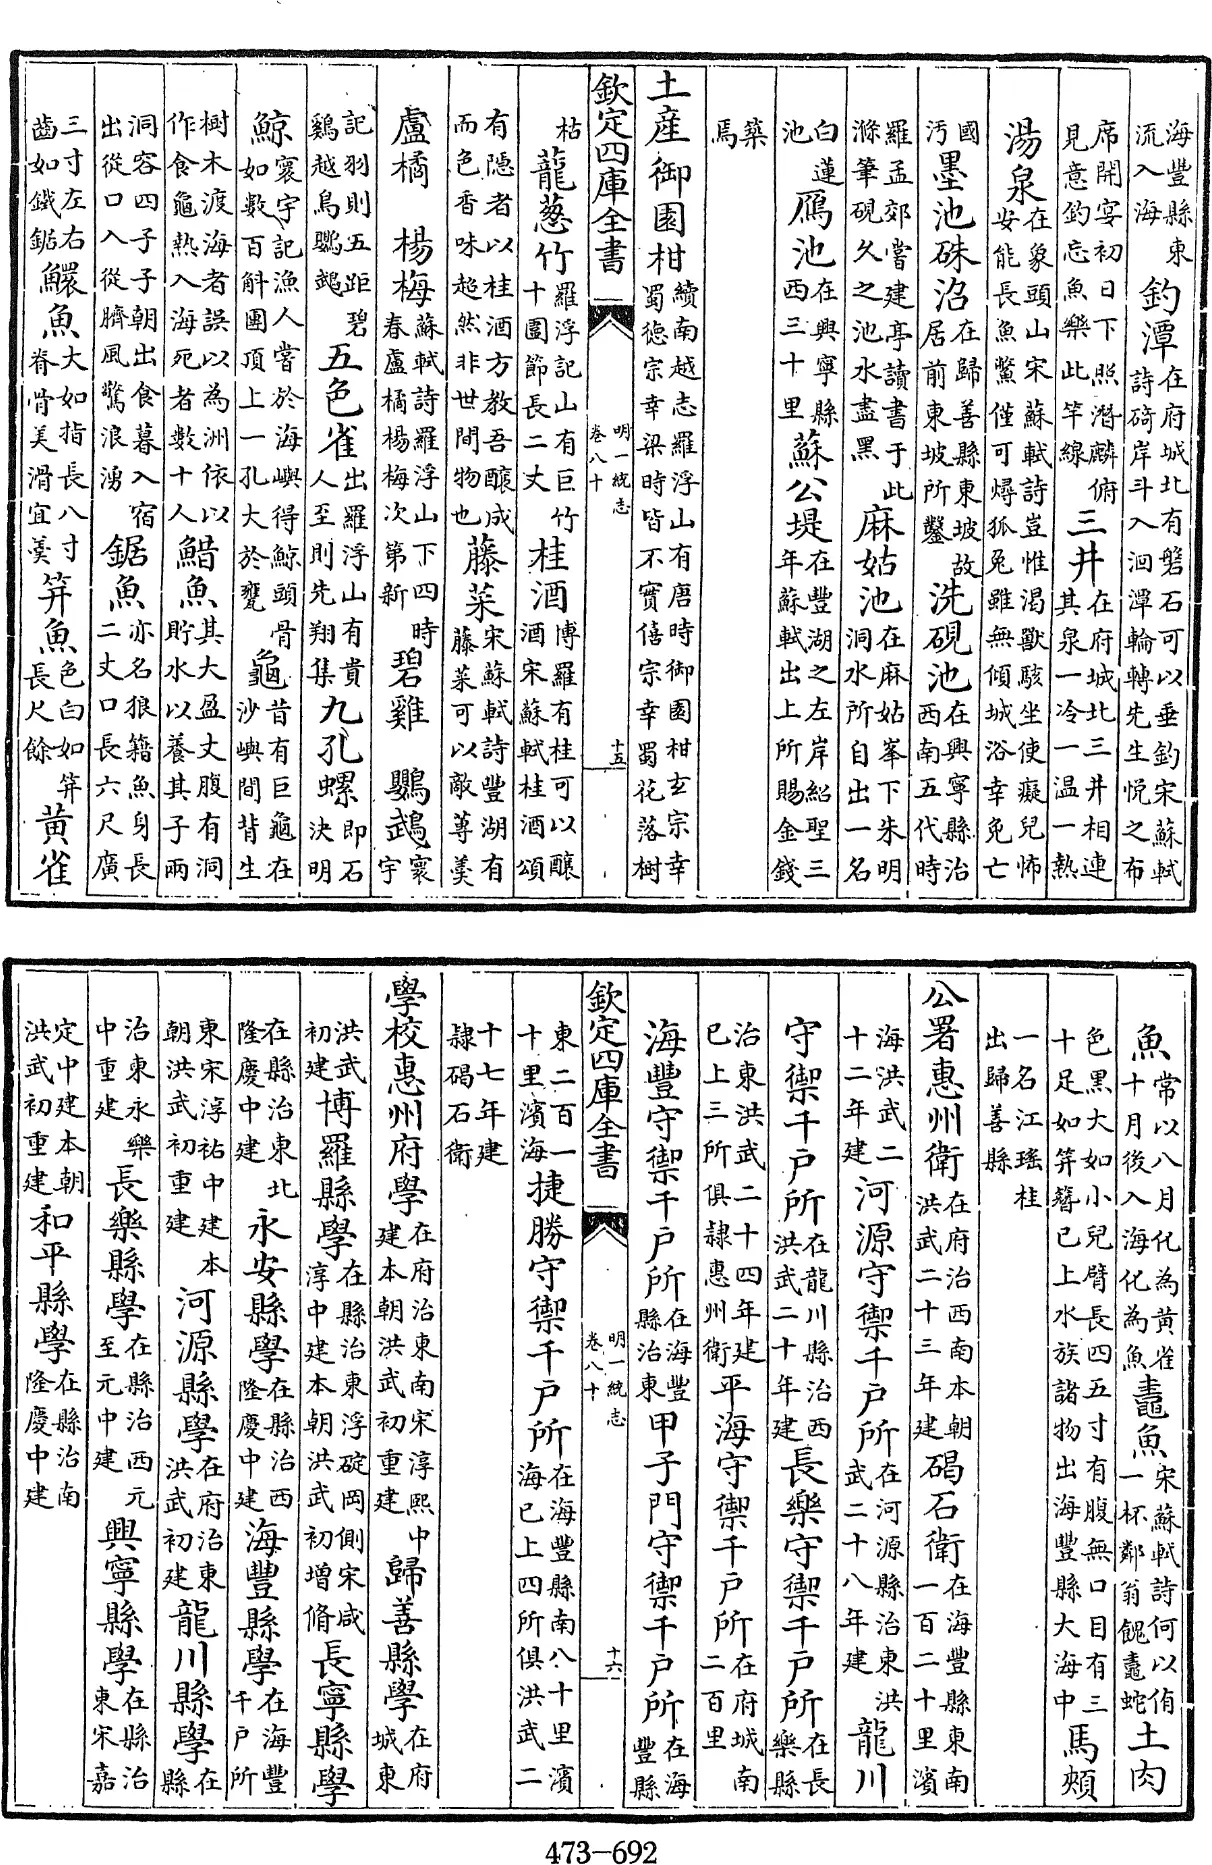 海豐縣東流入海釣潭在府城北有磐石可以垂釣宋蘇軾詩碕岸斗入洄潭輪轉先生悅之布
席開宴初日下照潛鱗俯見意釣忘魚樂此竿線三井在府城北三井相連其泉一冷一温一熱
湯泉在象頭山宋蘇軾詩豈惟渴獸駭坐使癡兒怖安能長魚鱉僅可燖狐兔雖無傾城浴幸免亡
國汚墨池硃沼在歸善縣東坡故居前東坡所鑿洗硯池在興寧縣治西南五代時
羅孟郊嘗建亭讀書于此滌筆硯久之池水盡黑麻姑池在麻姑峯下朱明洞水所自出一名
白蓮池鴈池在興寧縣西三十里蘇公堤在豐湖之左岸紹聖三年蘇軾出上所賜金錢
築焉
土産御園柑續南越志羅浮山有唐時御園柑玄宗幸蜀德宗幸梁時皆不實僖宗幸蜀花落樹
欽定四庫全書 明一統志卷八十 十五
枯蘢葱竹羅浮記山有巨竹十圍節長二丈桂酒博羅有桂可以釀酒宋蘇軾桂酒頌
有隱者以桂酒方教吾釀成而色香味超然非世間物也藤菜宋蘇軾詩豐湖有藤菜可以敵蓴羹
盧橘 楊梅蘇軾詩羅浮山下四時春盧橘楊梅次第新碧雞 鸚鵡寰宇
記羽則五距碧鷄越鳥鸚鵡五色雀出羅浮山有貴人至則先翔集九孔螺即石決明
鯨寰宇記漁人嘗於海嶼得鯨頭骨如數百斛囷頂上一孔大於甕龜昔有巨龜在沙嶼間背生
樹木渡海者誤以為洲依以作食龜熱入海死者數十人䱜魚其大盈丈腹有洞貯水以養其子兩
洞容四子子朝出食暮入宿出從口入從臍風驚浪湧鋸魚亦名狼籍魚身長二丈口長六尺廣
三寸左右齒如鐵鋸鱞魚大如指長八寸脊骨美滑宜羹笄魚色白如笄長尺餘黄雀
魚常以八月化為黄雀十月後入海化為魚鼃魚宋蘇軾詩何以侑一杯鄰翁餽鼃蛇土肉
色黑大如小兒臂長四五寸有腹無口目有三十足如笄簪已上水族諸物出海豐縣大海中馬頰
一名江瑤桂出歸善縣
公署惠州衛在府治西南本朝洪武二十三年建碣石衛在海豐縣東南一百二十里濱
海洪武二十二年建河源守禦千戶所在河源縣治東洪武二十八年建龍川
守禦千戶所在龍川縣治西洪武二十年建長樂守禦千戶所在長樂縣
治東洪武二十四年建已上三所俱隸惠州衛平海守禦千戶所在府城南二百里
海豐守禦千戶所在海豐縣治東甲子門守禦千戶所在海豐縣
欽定四庫全書 明一統志卷八十 十六
東二百一十里濱海捷勝守禦千戶所在海豐縣南八十里濱海已上四所俱洪武二
十七年建隸碣石衛
學校惠州府學在府治東南宋淳熙中建本朝洪武初重建歸善縣學在府城東
洪武初建博羅縣學在縣治東浮碇岡側宋咸淳中建本朝洪武初增脩長寧縣學
在縣治東北隆慶中建永安縣學在縣治西隆慶中建海豐縣學在海豐千戶所
東宋淳祐中建本朝洪武初重建河源縣學在府治東洪武初建龍川縣學在縣
治東永樂中重建長樂縣學在縣治西元至元中建興寧縣學在縣治東宋嘉
定中建本朝洪武初重建和平縣學在縣治南隆慶中建
473-692